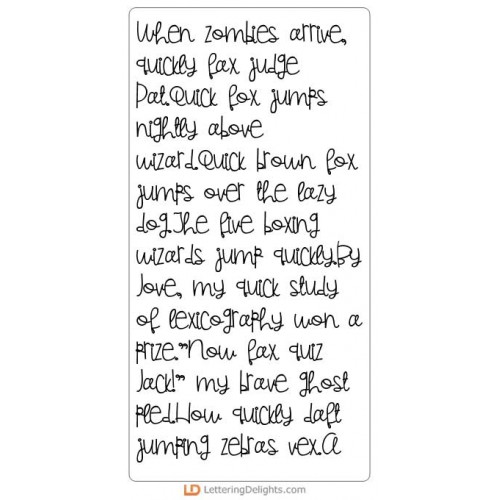 When zombies arrive,
quickly fax judge
Pat.Quick fox jumps
nightly above
wizard.Quick brown fox
jumps over the lazy
dog.The five boxing
wizards jump quickly.By
Jove, my quick study
of lexicography won a
prize."Now fax quiz
Jack!" my brave ghost
pled.How quickly daft
jumping zebras vex.A
LD LetteringDelights.com